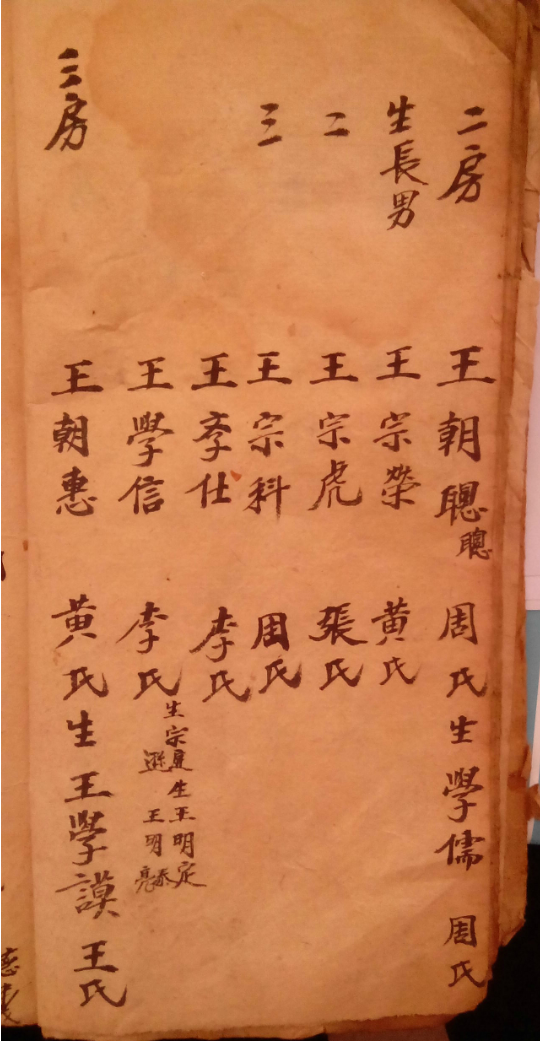 二房 王朝聰聰 周氏生學儒 周氏
生長男 王宗榮 黃氏
二 王宗虎 張氏
三 王宗科 周氏
王李仕 李氏
王學信 李氏
生宗 生王明定
王明亮
三房 王朝惠 黃氏生王學謨 王氏